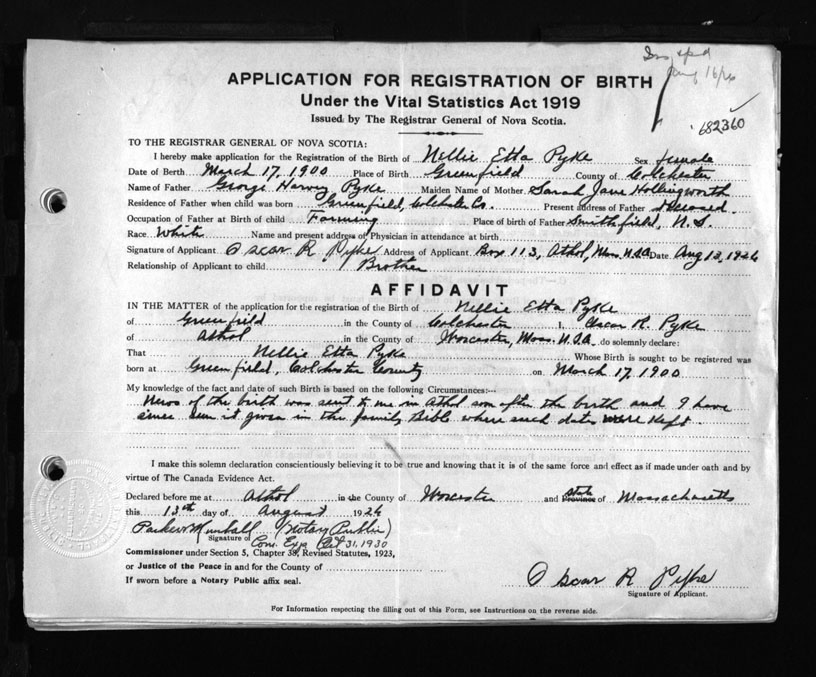 Aug 16/26
682360
APPLICATION FOR REGISTRATION OF BIRTH
Under the Vital Statistics Act 1919
Issued by The Registrar General of Nova Scotia.
TO THE REGISTRAR GENERAL OF NOVA SCOTIA:
I hereby make application for the Registration of the Birth of Nellie Etta Pyke Sex female
Date of Birth March 17, 1900 Place of Birth Greenfield County of Colchester
Name of Father George Harvey Pyke Maiden Name of Mother Sarah Jane Hollingworth
Residence of Father when child was born Greenfield, Colchester Co. Present address of Father deceased.
Occupation of Father at Birth of child Farming Place of birth of Father Smithfield, N.S.
Race White Name and present address of Physician in attendance at birth.
Signature of Applicant Oscar R Pyke Address of Applicant Box 113, Athol, Mass. U.S.A. Date Aug 13, 1926
Relationship of Applicant to child Brother
AFFIDAVIT
IN THE MATTER of the application for the registration of the Birth of Nellie Etta Pyke
of Greenfield in the County of Colchester I, Oscar R. Pyke
of Athol in the County of Worcester, Mass. U.S.A. do solemnly declare:
That Nellie Etta Pyke Whose Birth is sought to be registered was
born at Greenfield, Colchester County on March 17, 1900
My knowledge of the fact and date of such Birth is based on the following Circumstances:—
News of the birth was sent to me in Athol soon after the birth and I have
since seen it given in the family Bible where such dates were kept.
I make this solemn declaration conscientiously believing it to be true and knowing that it is of the same force and effect as if made under oath and by
virtue of The Canada Evidence Act.
Declared before me at Athol in the County of Worcester and State Province of Massachusetts
this 13th day of August 1926
(Notary Public)
Signature of Com. Exp. Oct 31, 1930
Commissioner under Section 5, Chapter 38, Revised Statutes, 1923,
or Justice of the Peace in and for the County of
If sworn before a Notary Public affix seal.
Oscar R Pyke
Signature of Applicant.
For Information respecting the filling out of this Form, see Instructions on the reverse side.